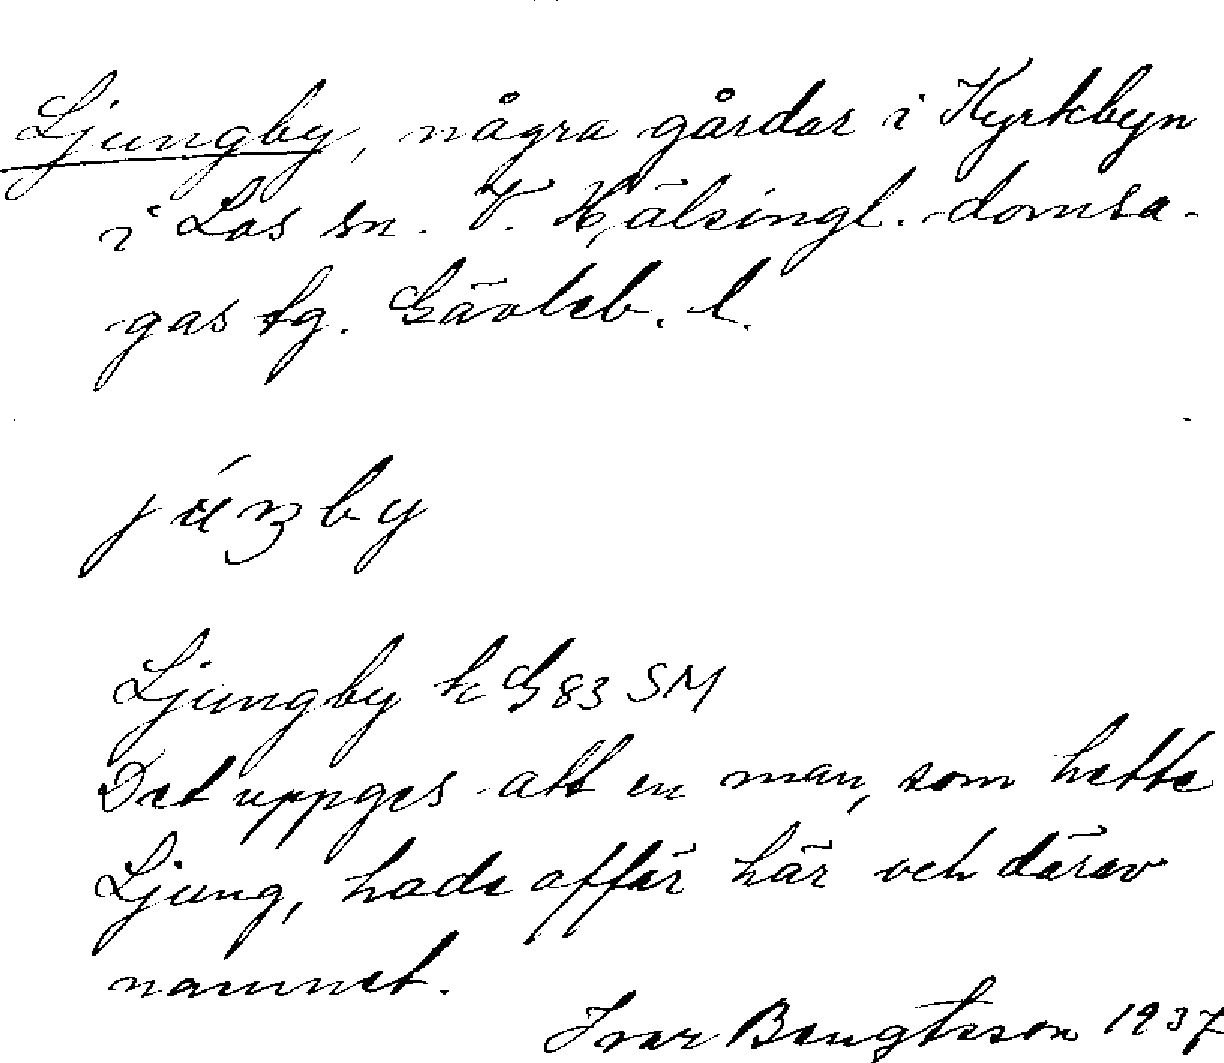 Ljungby, några gårdar i Kyrkbyn
i Los sn. V. Hälsingl. domsa-
gas tg. Gävleb. l.
Ljungby k G 83 SM
Det uppges att en man, som hette
Ljung, hade affär här och därav
namnet.
Ivar Bengtsson 1937